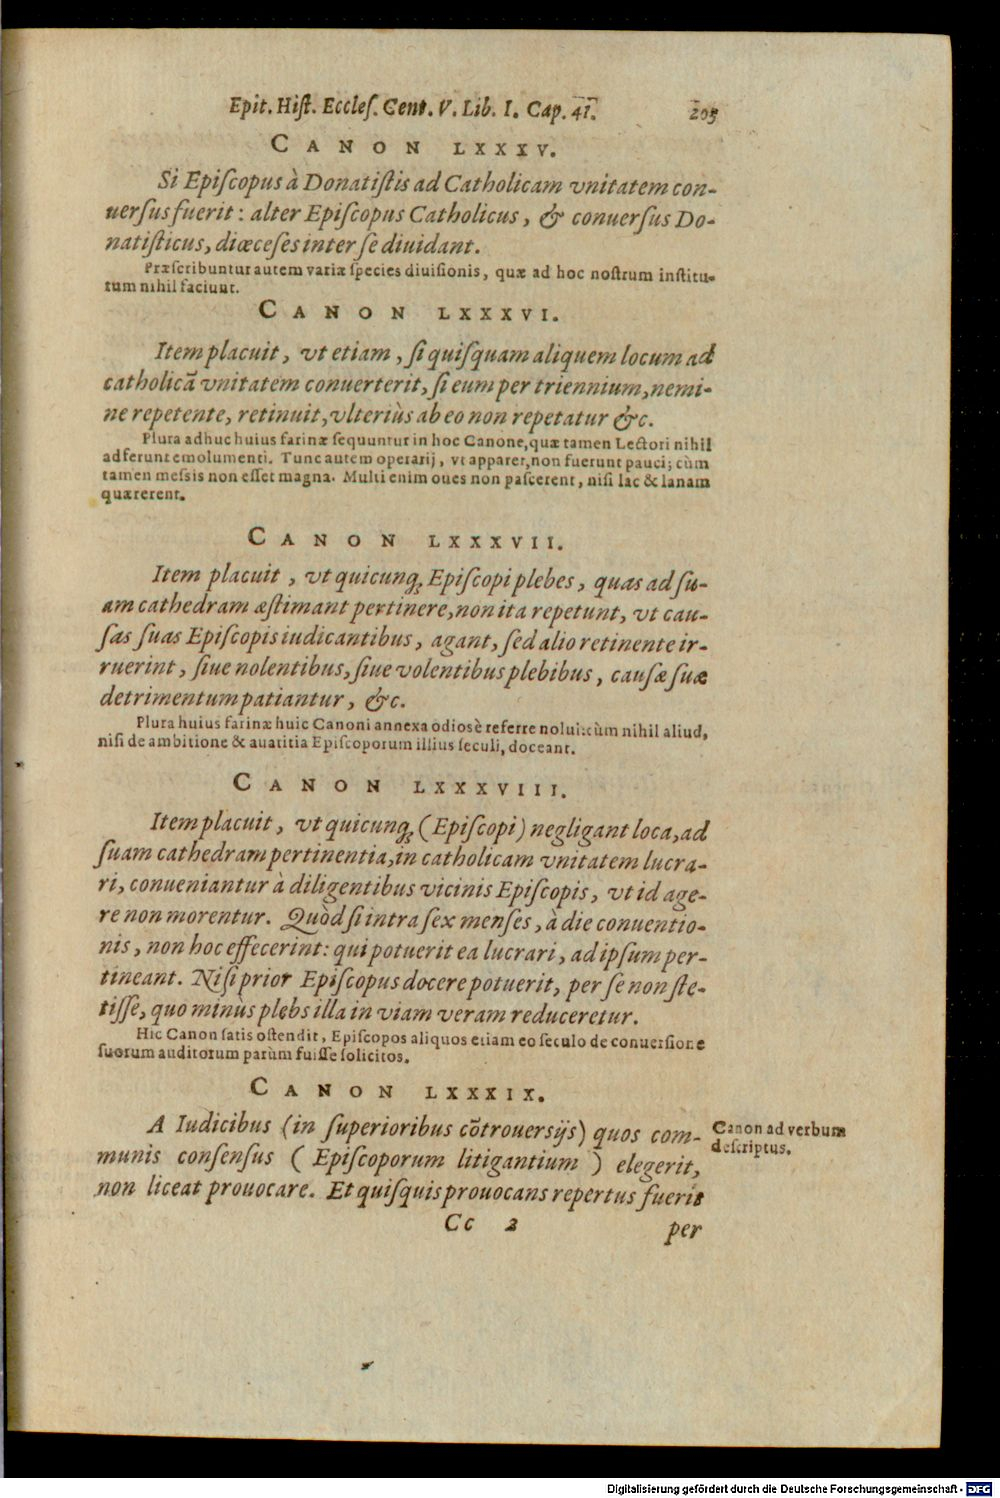 Epit. Hiſt. Eccleſ. Cent. V. Lib. I. Cap. 41. 205
CANON LXXXV.
Si Epiſcopus à Donatiſtis ad Catholicam vnitatem con-
uerſus fuerit: alter Epiſcopus Catholicus, & conuerſus Do-
natiſticus, diœceſes inter ſe diuidant.
Præſcribuntur autem variæ ſpecies diuiſionis, quæ ad hoc noſtrum inſtitu-
tum nihil faciunt.
CANON LXXXVI.
Item placuit, vt etiam, ſi quiſquam aliquem locum ad
catholicã vnitatem conuerterit, ſi eum per triennium, nemi-
ne repetente, retinuit, vlteriùs ab eo non repetatur &c.
Plura adhuc huius farinæ ſequuntur in hoc Canone, quæ tamen Lectori nihil
adferunt emolumenti. Tunc autem operarij, vt apparet, non fuerunt pauci; cùm
tamen meſsis non eſſet magna. Multi enim oues non paſcerent, niſi lac & lanam
quærerent.
CANON LXXXVII.
Item placuit, vt quicunq; Epiſcopi plebes, quas ad ſu-
am cathedram æſtimant pertinere, non ita repetunt, vt cau-
ſas ſuas Epiſcopis iudicantibus, agant, ſed alio retinente ir-
ruerint, ſiue nolentibus, ſiue volentibus plebibus, cauſæ ſuæ
detrimentum patiantur, &c.
Plura huius farinæ huic Canoni annexa odiosè referre nolui: cùm nihil aliud,
niſi de ambitione & auaritia Epiſcoporum illius ſeculi, doceant.
CANON LXXXVIII.
Item placuit, vt quicunq; (Epiſcopi) negligant loca, ad
ſuam cathedram pertinentia, in catholicam vnitatem lucra-
ri, conueniantur à diligentibus vicinis Epiſcopis, vt id age-
re non morentur. Quòd ſi intra ſex menſes, à die conuentio-
nis, non hoc effecerint: qui potuerit ea lucrari, ad ipſum per-
tineant. Niſi prior Epiſcopus docere potuerit, per ſe non ſte-
tiſſe, quo minùs plebs illa in viam veram reduceretur.
Hic Canon ſatis oſtendit, Epiſcopos aliquos etiam eo ſeculo de conuerſione
ſuorum auditorum parùm fuiſſe ſolicitos.
CANON LXXXIX.
A Iudicibus (in ſuperioribus cõtrouerſijs) quos com-
munis conſenſus (Epiſcoporum litigantium) elegerit,
non liceat prouocare. Et quiſquis prouocans repertus fuerit
Canon ad verbum
deſcriptus.
Cc 2 per
Digitalisierung gefördert durch die Deutsche Forschungsgemeinschaft - DFG